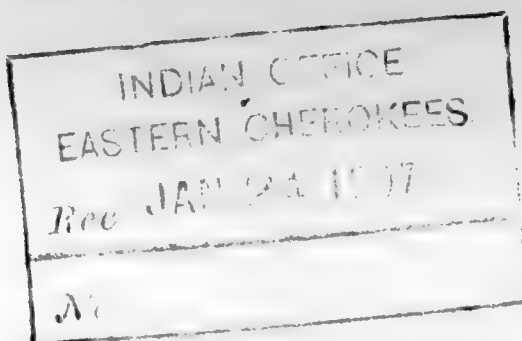 INDIAN OFFICE
EASTERN CHEROKEES
Rec JAN 24 1907
No